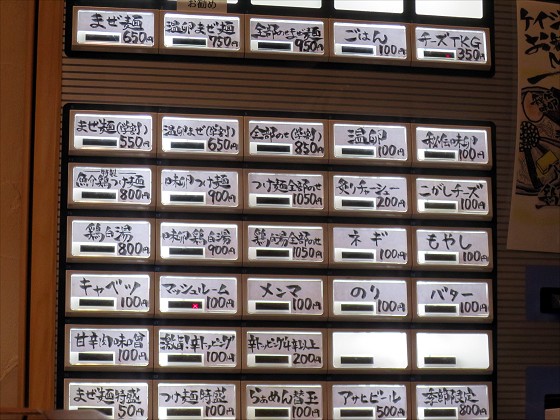 お勧め
まぜ麺 650円
温卵まぜ麺 750円
全部のせまぜ麺 950円
ごはん 100円
チーズTKG 350円
まぜ麺(学割) 550円
温卵まぜ(学割) 650円
全部のせ(学割) 850円
温卵 100円
秘伝味卵 100円
特製
魚介鶏つけ麺 800円
味卵つけ麺 900円
つけ麺全部のせ 1050円
炙りチャーシュー 200円
こがしチーズ 100円
鶏白湯 800円
味卵鶏白湯 900円
鶏白湯全部のせ 1050円
ネギ 100円
もやし 100円
キャベツ 100円
マッシュルーム 100円
メンマ 100円
のり 100円
バター 100円
甘辛肉味噌 100円
激旨!辛トッピング 100円
辛トッピング4辛以上 200円
まぜ麺特盛 50円
つけ麺特盛 100円
らぁめん替玉 100円
アサヒビール 500円
季節限定 800円